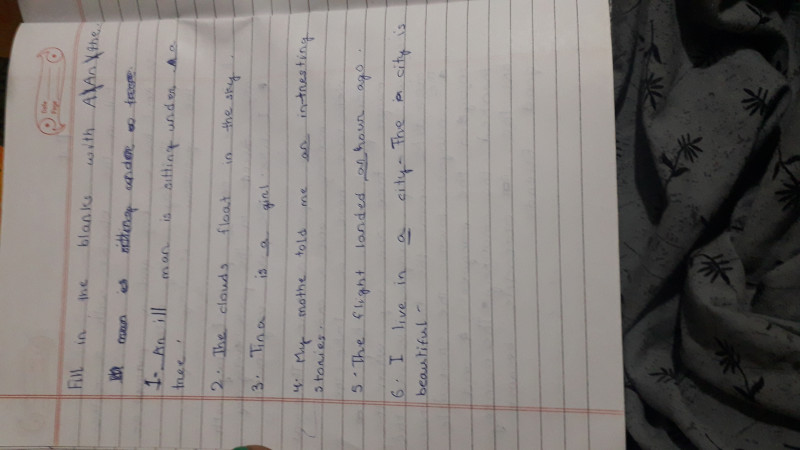 Date
Page
Fill in the blanks with A/An/the.
1. An ill man is sitting under a
tree.
2. The clouds float in the sky.
3. Tina is a girl.
4. My mothe told me an intresting
stories.
5. The flight landed an hour ago.
6. I live in a city. The city is
beautiful